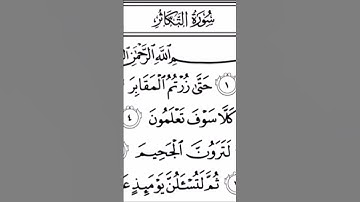 سُورَةُ التَّكَاثُرِ
اللَّهِ الرَّحْمَٰنِ
١ حَتَّىٰ زُرْتُمُ الْمَقَابِرَ
كَلَّا سَوْفَ تَعْلَمُونَ ٤
لَتَرَوُنَّ الْجَحِيمَ
ثُمَّ لَتُسْأَلُنَّ يَوْمَئِذٍ